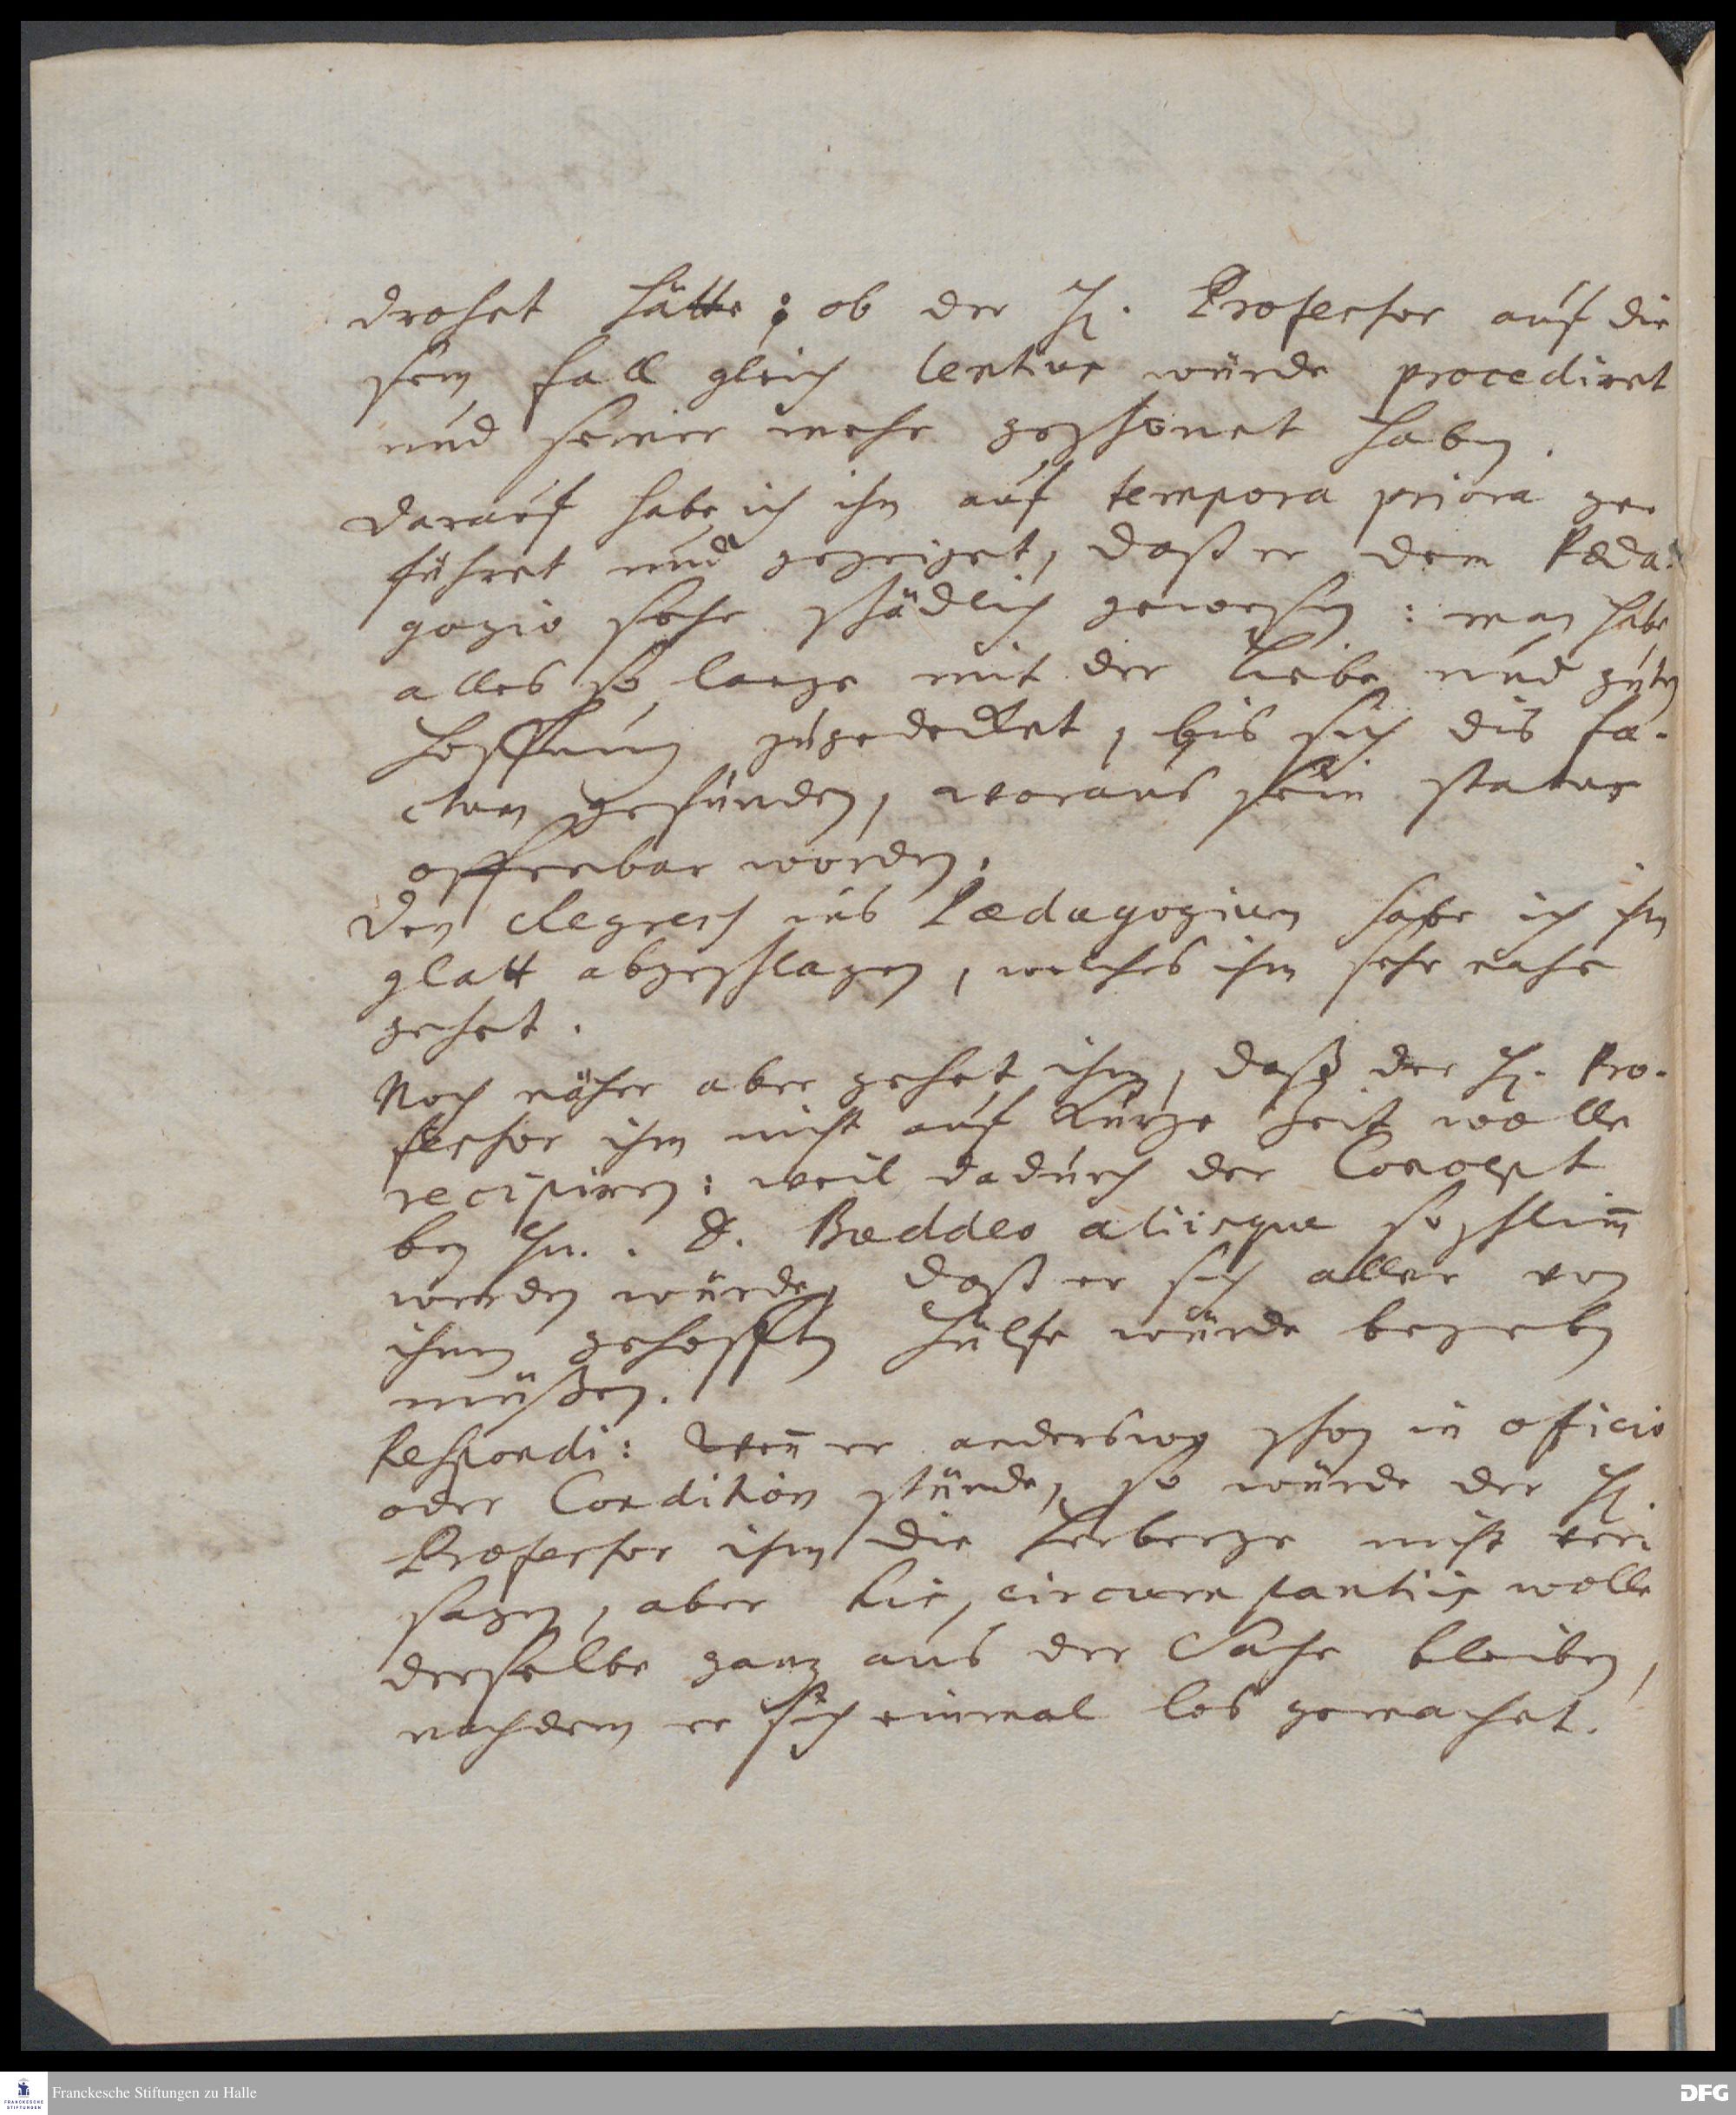 drohet hätte; ob der H. Professor auf die
sem fall gleich lentius würde procediret
und seiner mehr geschonet haben.
Darauf habe ich ihn auf tempora priora ge
führet und gezeiget, daß er dem Pæda-
gogio sehr schädlich gewesen: man habe
alles so lange mit der Liebe und guten
Hoffnung zugedecket, bis sich dis fa-
ctum gefunden, woraus sein status
offenbar worden.
Den Regress ins Pædagogium habe ich ihm
glatt abgeschlagen, welches ihm sehr nahe
gehet.
Noch näher aber gehet ihm, daß der H. Pro-
fessor ihn nicht auf kurze Zeit wolle
recipiren: weil dadurch der Concept
bey Hn. D. Buddeo aliisque so schlim̄
werden würde, daß er sich aller von
ihnen gehofften Hülfe würde begeben
müßen.
Respondi: Wen̄ er anderswo schon in officio
oder Condition stünde, so würde der H.
Professor ihm die Herberge nicht ver
sagen, aber hic circumstantiis wolle
derselbe ganz aus der Sache bleiben,
nachdem er sich einmal los gemachet.
Franckesche Stiftungen zu Halle
FRANCKESCHE STIFTUNGEN
DFG